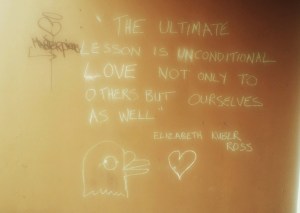 "THE ULTIMATE
LESSON IS UNCONDITIONAL
LOVE NOT ONLY TO
OTHERS BUT OURSELVES
AS WELL"
ELIZABETH KUBER
ROSS